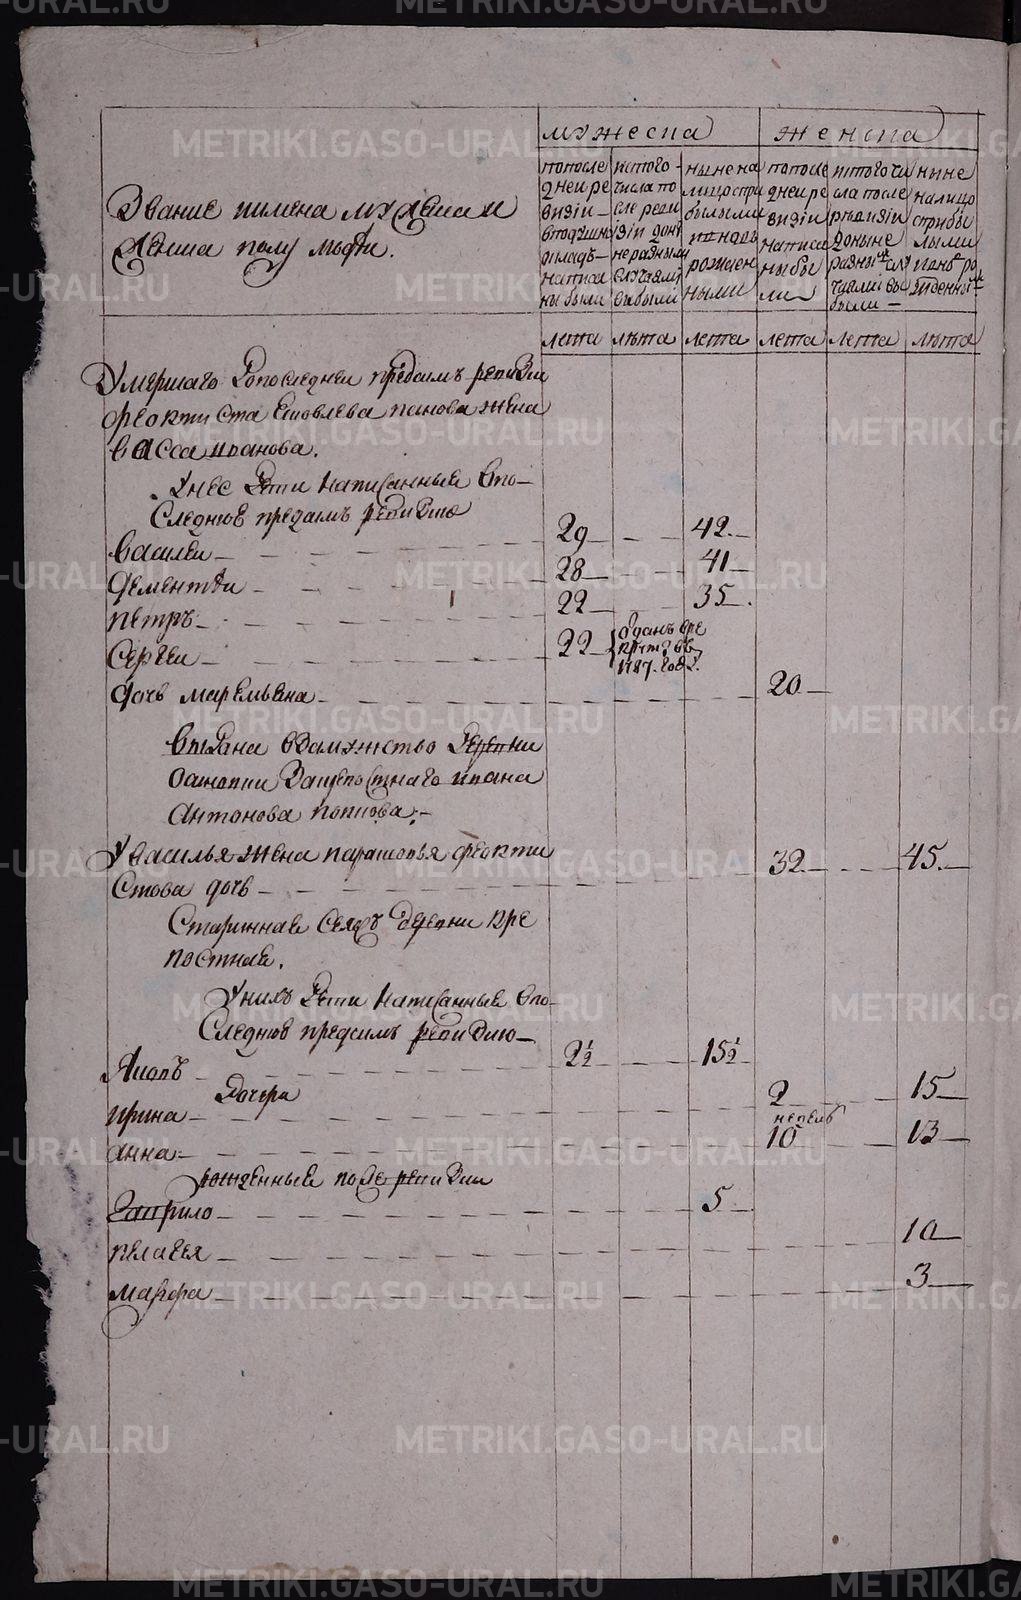 мужеска
женска
Звание иимена мужеска и
женска полу людеи.
попосле
днеи ре
визiи
вподушн
окладѣ
написа
ны были
истого
числа по
сле реви
зiи донн
неразным
случаям
выбыли
ныне на
лицо спри
былыми
ивновь
рожден
ными
попосле
днеи ре
визiи
написа
ны бы
ли
истого чи
сла после
ревизiи
доныне
разным слу
чаями вы
были
ныне
налицо
сприбы
лыми
иновь ро
жденны
лета
лѣта
лета
лета
лета
лѣта
Умершаго допоследнеи предсимъ ревизiи
феоктиста Яковлева панова жена
васса иванова.
Унее дети написанныя впо
Следнюю предсимъ ревизию
василеи 29 42
дементеи 28 41
петръ 22 35
Сергеи 22 отданъ вре
круты въ
1787. годе.
дочь маремьяна 20
выдана взамужство деревни
Заимостнаго ивана
антонова попкова
Увасилья жена парасковья феокти
Стова дочь 32 45
Стариннае Сеяжъ деревни кре
постная.
Унихъ дети написанныя впо
Следнюю предсимъ ревизию
Яковъ 2½ 15½
Дочери
ирина 2 15
недель
анна 10 13
рожденныя после ревизiи
Гаврило 5
пелагея 10
марфа 3
METRIKI.GASO-URAL.RU